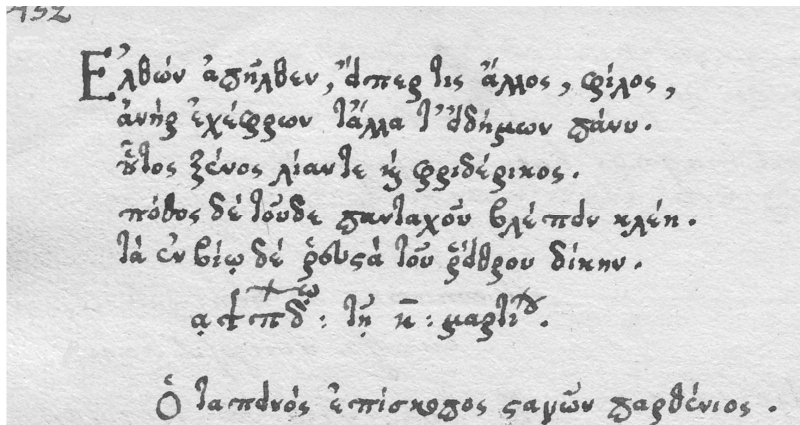 432
Ἐλθών ἀπῆλθεν, ὥσπερ τις ἄλλος, φίλος,
ἀνήρ ἐχέφρων τἄλλα τ' πάνυ.
οὗτος ξένος λίαντε καὶ φριδέρικος.
πόθος δέ τοῦδε πανταχοῦ βλέπειν κλέη.
τά ἐν βίῳ δέ ῥευστὰ τοῦ δίκην.
τῇ κ : μαρτίου.
Ὁ ταπεινός ἐπίσκοπος παρθένιος.